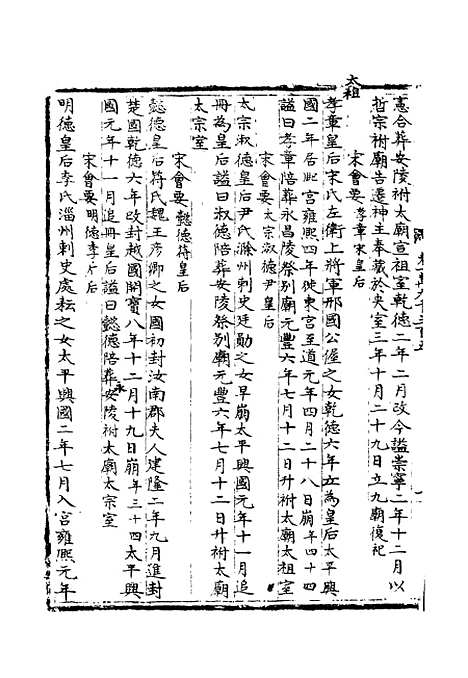 憲合葬安陵祔太廟宣祖室乾德二年二月改今謚崇寧二年十二月以
哲宗祔廟告遷神主奉藏於夾室三年十月二十九日立九廟復祀
宋會要孝章宋皇后
太祖
孝章皇后宋氏左衛上將軍邢國公偓之女乾德六年立為皇后太平興
國二年居西宮雍熙四年徙東宮至道元年四月二十八日崩年四十四
謚曰孝章陪葬永昌陵祭別廟元豐六年七月十二日升祔太廟太祖室
宋會要太宗淑德尹皇后
太宗淑德皇后尹氏滁州刺史廷勛之女早崩太平興國元年十一月追
冊為皇后謚曰淑德陪葬安陵祭別廟元豐六年七月十二日升祔太廟
太宗室
宋會要懿德符皇后
懿德皇后符氏魏王彥卿之女國初封汝南郡夫人建隆二年九月進封
楚國乾德六年改封越國開寶八年十二月十九日崩年三十四太平興
國元年十一月追冊皇后謚曰懿德陪葬永安陵祔太廟太宗室
宋會要明德李皇后
明德皇后李氏淄州刺史處耘之女太平興國二年七月入宮雍熙元年